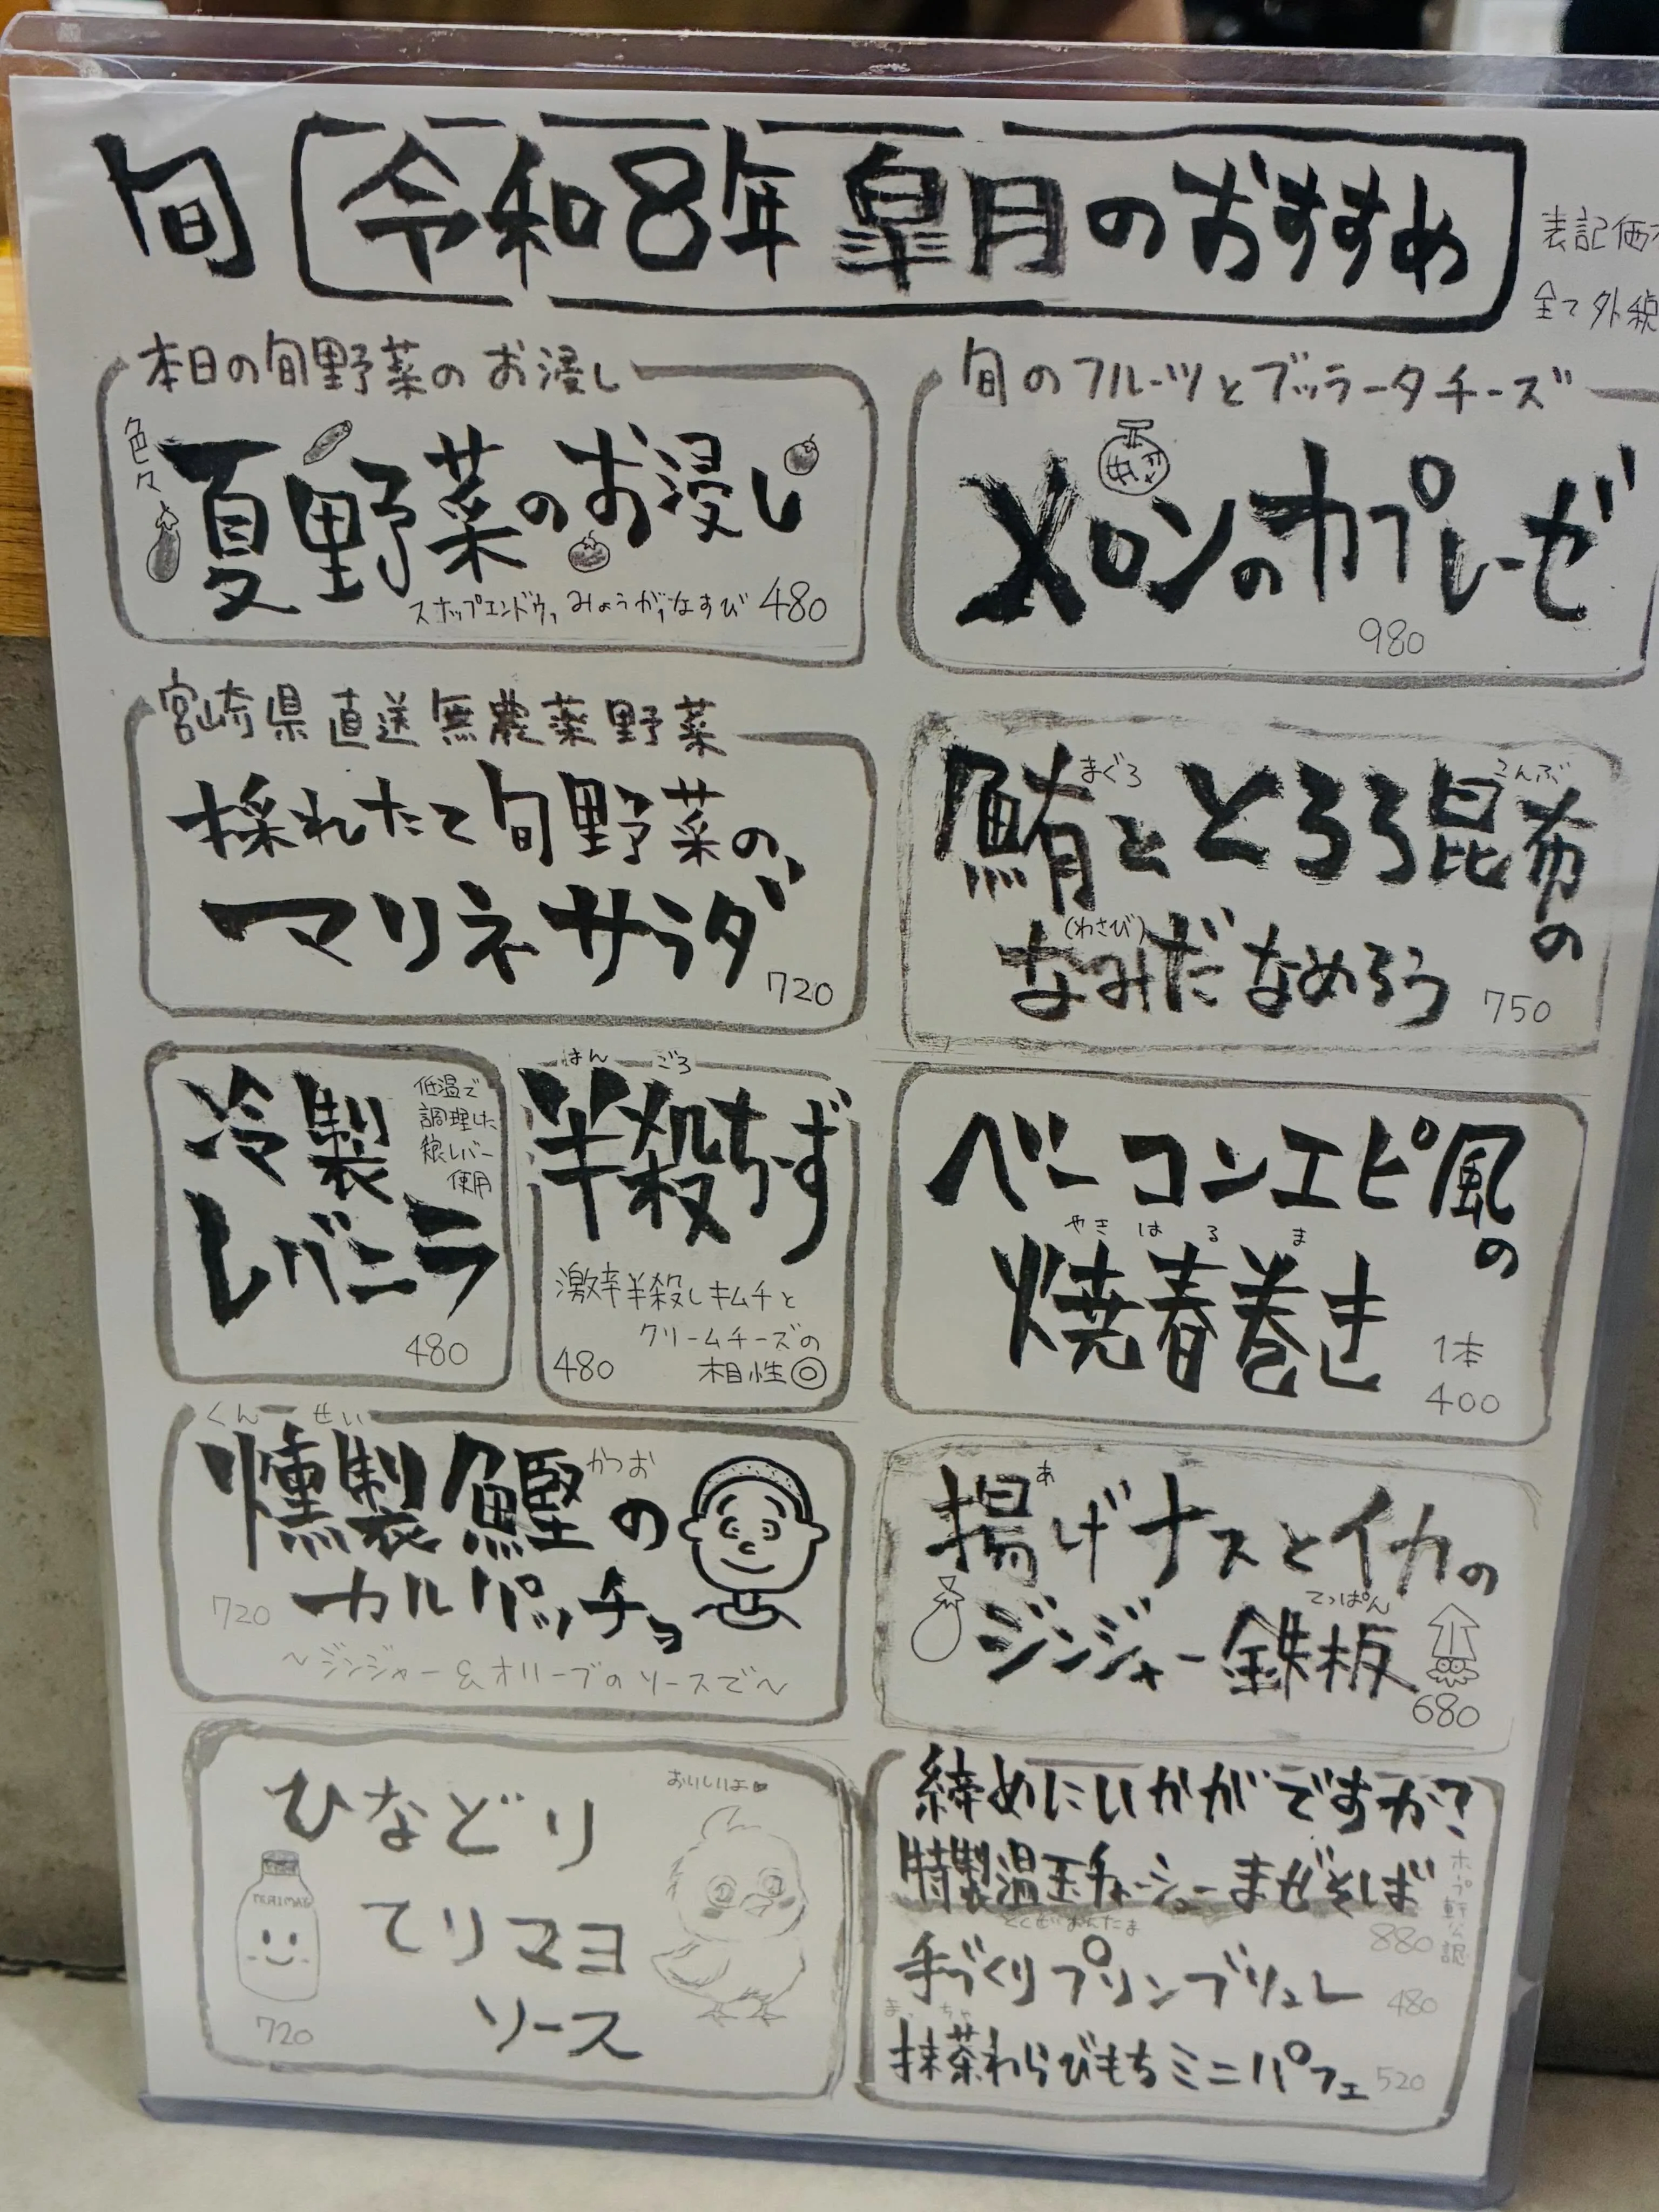 旬
令和8年 皐月のおすすめ
表記価
全て外税
本日の旬野菜のお浸し
色々
夏野菜のお浸し
スナップエンドウ、みょうが、なすび 480
旬のフルーツとブッラータチーズ
メロンのカプレーゼ
980
宮崎県直送無農薬野菜
採れたて旬野菜の
マリネサラダ
720
まぐろ こんぶ
鮪ととろろ昆布の
(わさび)
なみだなめろう 750
冷製
レバニラ
低温で
調理した
鶏レバー
使用
480
はんごろ
半殺ちーず
激辛半殺しキムチと
クリームチーズの
相性◎
480
ベーコンエピ風の
やきはるま
焼春巻き
1本
400
くんせい かつお
燻製鰹の
カルパッチョ
720
〜ジンジャー&オリーブのソースで〜
あ
揚げナスとイカの
てっぱん
ジンジャー鉄板
680
ひなどり
てりマヨ
ソース
おいしいよ♥
720
締めにいかがですか?
特製温玉チャーシューまぜそば
880
手づくりプリンブリュレ 480
まっちゃ
抹茶わらびもちミニパフェ 520